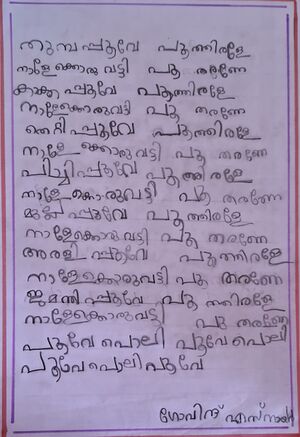 തുമ്പ പ്പൂവേ പൂത്തിരളേ
നാളേ ക്കൊരു വട്ടി പൂ തരണേ
കാക്ക പ്പൂവേ പൂത്തിരളേ
നാളേക്കൊരുവട്ടി പൂ തരണേ
തെച്ചി പ്പൂവേ പൂത്തിരളേ
നാളേ ക്കൊരുവട്ടി പൂ തരണേ
പിച്ചിപ്പൂവേ പൂത്തിരളേ
നാളേ ക്കൊരുവട്ടി പൂ തരണേ
മുല്ല പ്പൂവേ പൂത്തിരളേ
നാളേക്കൊരു വട്ടി പൂ തരണേ
അരളി പ്പൂവേ പൂത്തിരളേ
നാളേക്കൊരുവട്ടി പൂ തരണേ
ജമന്തിപ്പൂവേ പൂ ത്തിരളേ
നാളേക്കൊരുവട്ടി പൂ തരണേ
പൂവേ പൊലി പൂവേ പൊലി
പൂവേ പൊലി പൂവേ
ഗോവിന്ദ് എസ്